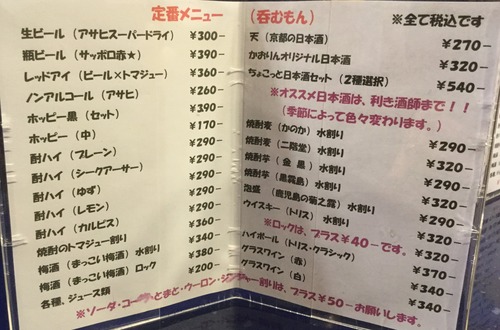 定番メニュー
生ビール（アサヒスーパードライ） ¥300-
瓶ビール（サッポロ赤★） ¥390-
レッドアイ（ビール×トマジュー） ¥360-
ノンアルコール（アサヒ） ¥260-
ホッピー黒（セット） ¥390-
ホッピー（中） ¥170-
酎ハイ（プレーン） ¥290-
酎ハイ（シークアーサー） ¥290-
酎ハイ（ゆず） ¥290-
酎ハイ（レモン） ¥290-
酎ハイ（カルピス） ¥290-
焼酎のトマジュー割り ¥360-
梅酒（まっこい梅酒）水割り ¥340-
梅酒（まっこい梅酒）ロック ¥380-
各種、ジュース類 ¥200-
（呑むもん） ※全て税込です
天（京都の日本酒） ¥270-
かおりんオリジナル日本酒 ¥320-
ちょこっと日本酒セット（２種選択） ¥540-
※オススメ日本酒は、利き酒師まで！！
（季節によって色々変わります。）
焼酎麦（かのか）水割り ¥290-
焼酎麦（二階堂）水割り ¥320-
焼酎芋（金 黒）水割り ¥290-
焼酎芋（黒霧島）水割り ¥320-
泡盛（鹿児島の菊之露）水割り ¥320-
ウイスキー（トリス）水割り ¥290-
※ロックは、プラス¥40-です。
ハイボール（トリス・クラシック） ¥320- ¥370-
グラスワイン（赤） ¥340-
グラスワイン（白） ¥340-
※ソーダ・コーラ・とまと・ウーロン・ジンジャー割りは、プラス¥50-お願いします。